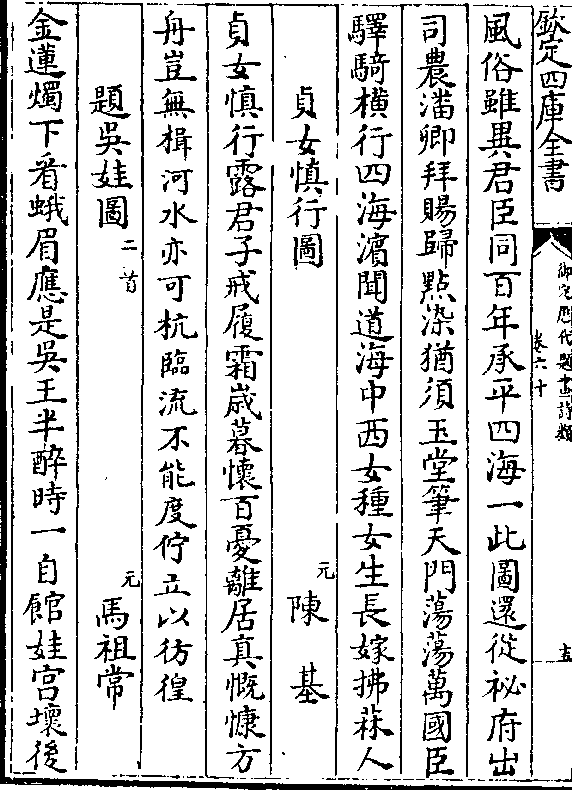 欽定四庫全書
御定歷代題畫詩類
卷六十
十五
風俗雖異君臣同百年承平四海一此圖還從祕府出
司農潘卿拜賜歸點染猶須玉堂筆天門蕩蕩萬國臣
驛騎橫行四海濵聞道海中西女種女生長嫁拂菻人
貞女慎行圖
元陳基
貞女慎行露君子戒履霜嵗暮懷百憂離居真慨慷方
舟豈無楫河水亦可杭臨流不能度佇立以彷徨
題吳娃圖二首
元馬祖常
金蓮燭下看蛾眉應是吳王半醉時一自館娃宫壞後